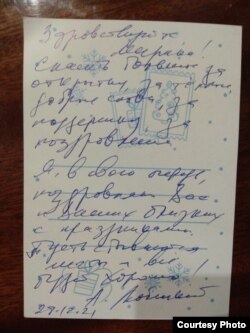 Здравствуйте
Мирава!
Спасибо большое за
открытку, за
добрые слова, за
поддержку, за
поздравления.
Я, в свою очередь,
поздравляю Вас
и Ваших близких
с праздниками.
Пусть сбываются
мечты и всё
будет хорошо!
А.
29.12.21
Courtesy Photo